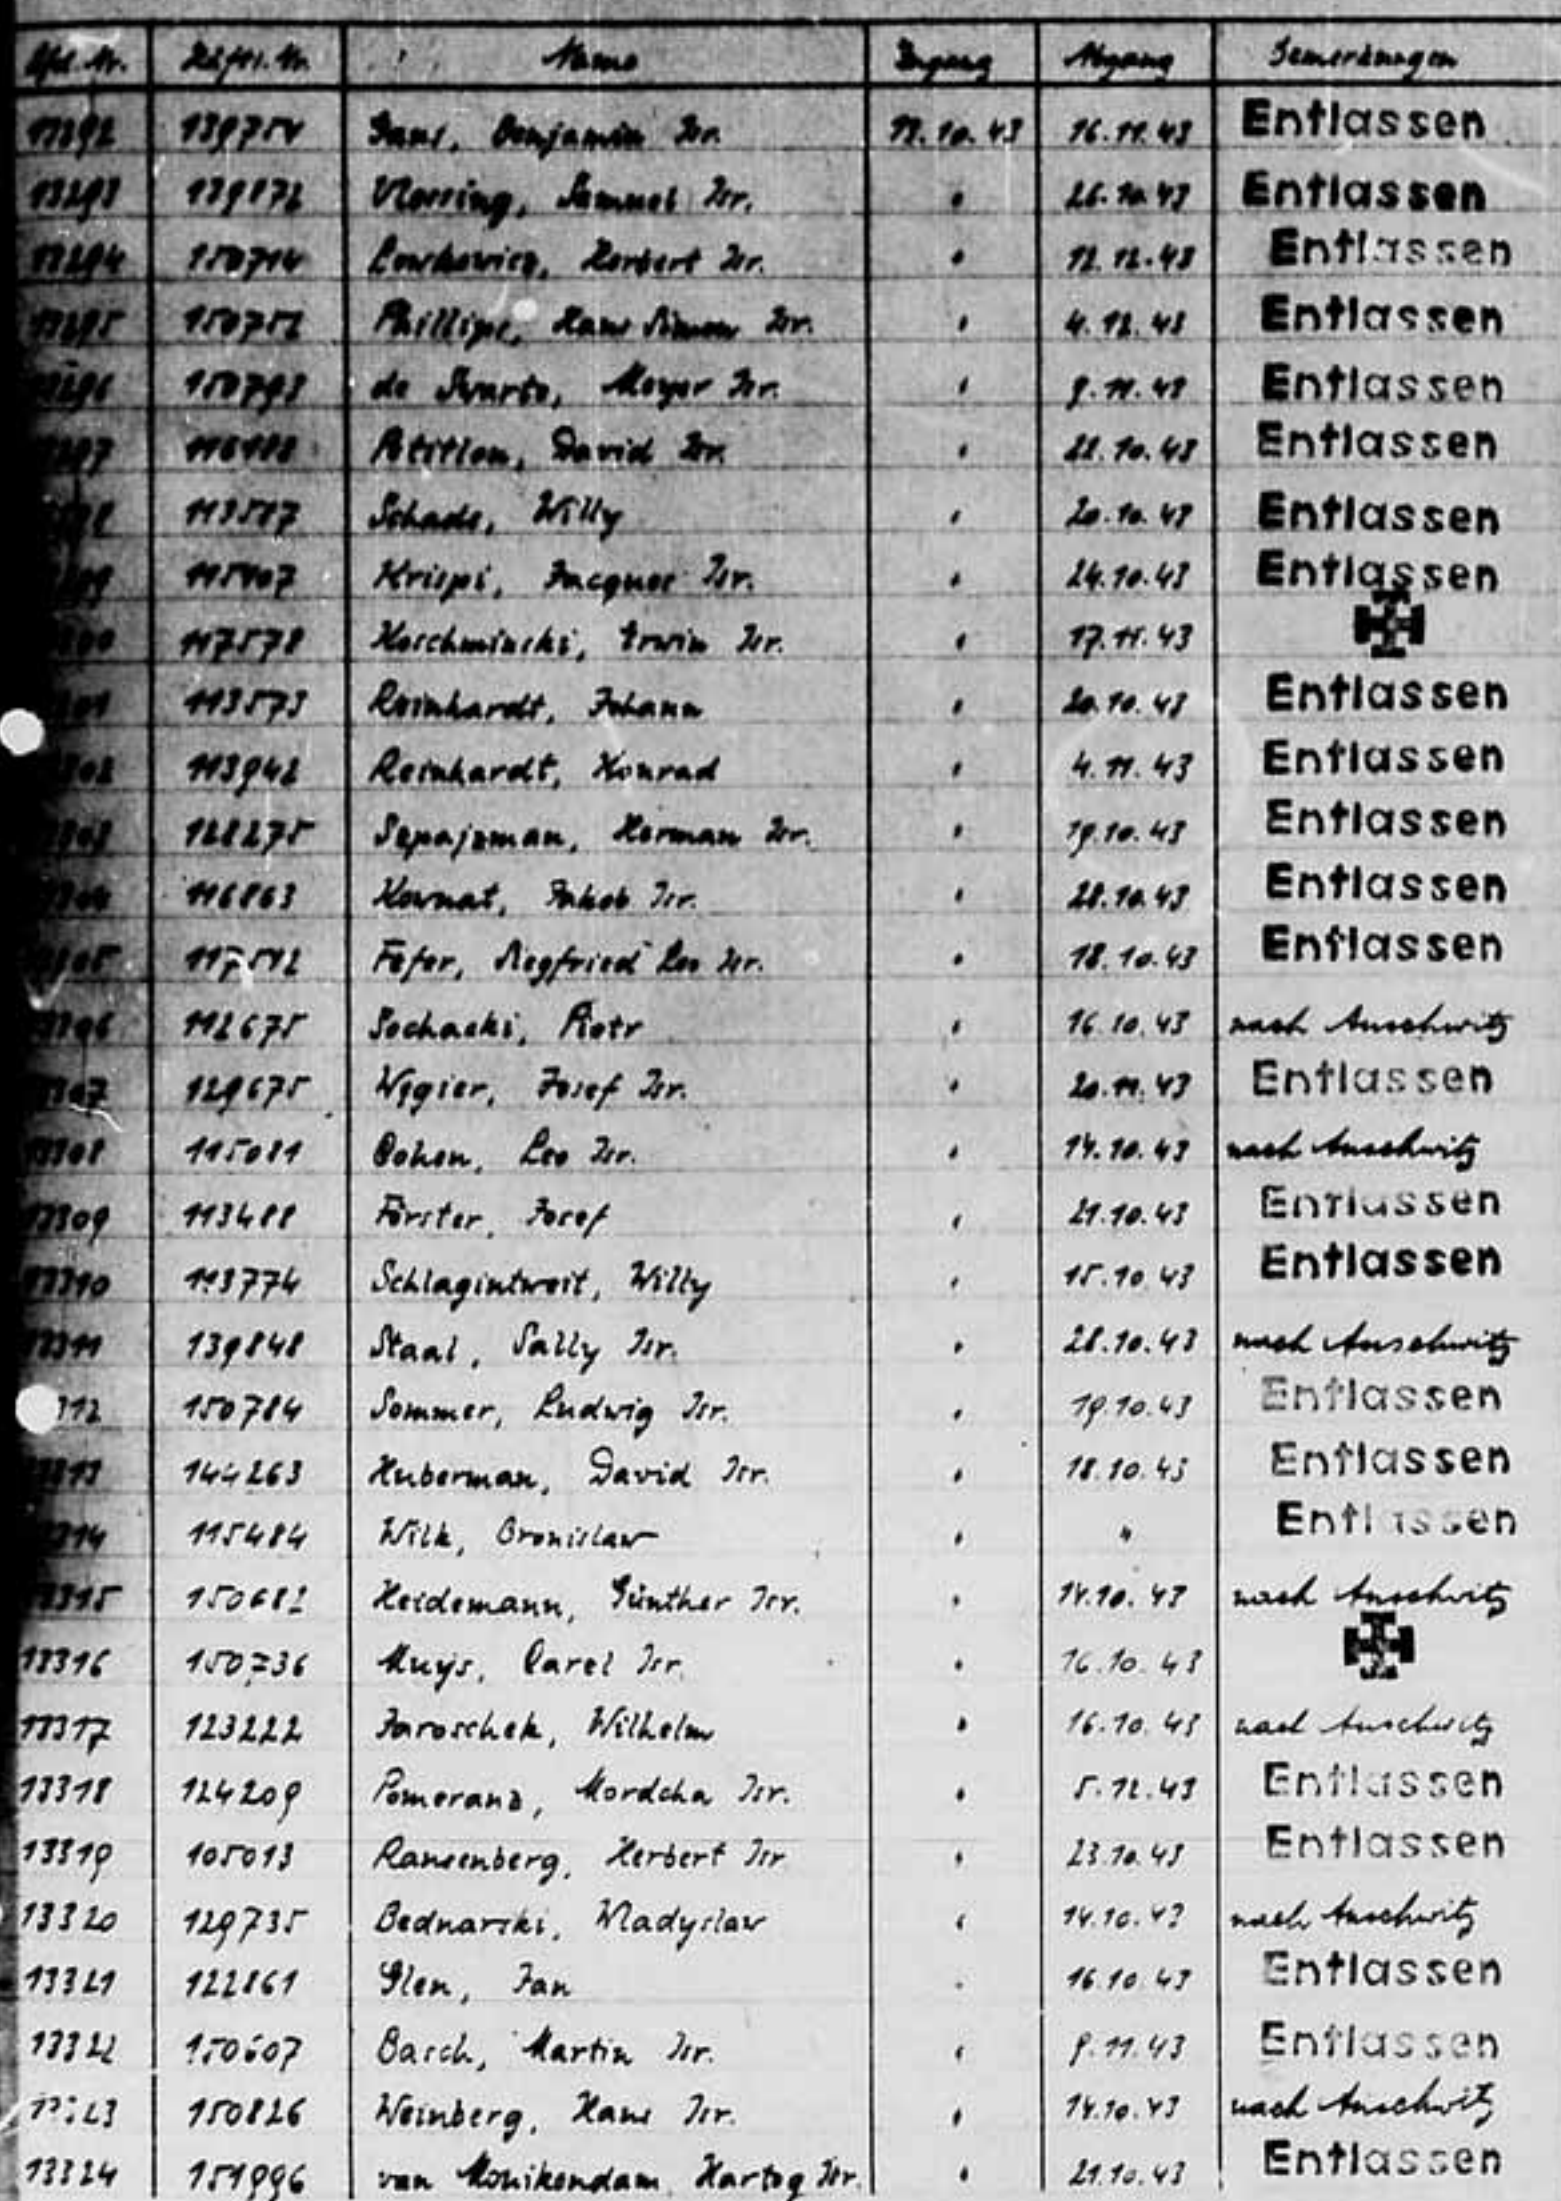 Lfd. Nr. Häftl. Nr. Name Zugang Abgang Bemerkungen
13292 139754 Gans, Benjamin Isr. 13.10.43 16.11.43 Entlassen
13293 139872 Samuel Isr. " 26.10.43 Entlassen
13294 150714 Herbert Isr. " 12.12.43 Entlassen
13295 150752 Phillips, Hans Simon Isr. " 4.12.43 Entlassen
150793 de Meyer Isr. " 9.11.43 Entlassen
David Isr. " 28.10.43 Entlassen
113587 Schade, Willy " 20.10.43 Entlassen
115407 Krispi, Jacques Isr. " 24.10.43 Entlassen
117578 Koschminski, Erwin Isr. " 17.11.43
113573 Reinhardt, Johann " 20.10.43 Entlassen
113942 Reinhardt, Konrad " 4.11.43 Entlassen
128275 Szpajzman, Herman Isr. " 19.10.43 Entlassen
116863 Kornat, Jakob Isr. " 28.10.43 Entlassen
117512 Fefer, Siegfried Leo Isr. " 18.10.43 Entlassen
112675 Sochacki, Piotr " 16.10.43 nach Auschwitz
129675 Wegier, Josef Isr. " 20.11.43 Entlassen
13308 115081 Cohen, Leo Isr. " 14.10.43 nach Auschwitz
13309 113488 Förster, Josef " 21.10.43 Entlassen
13310 113774 Schlagintweit, Willy " 15.10.43 Entlassen
13311 139848 Staal, Sally Isr. " 28.10.43 nach Auschwitz
312 150784 Sommer, Ludwig Isr. " 19.10.43 Entlassen
13313 144263 Huberman, David Isr. " 18.10.43 Entlassen
13314 115484 Wilk, Bronislaw " " Entlassen
13315 150682 Heidemann, Günther Isr. " 14.10.43 nach Auschwitz
13316 150736 Muijs, Carel Isr. " 16.10.43
13317 123222 Jaroschek, Wilhelm " 16.10.43 nach Auschwitz
13318 124209 Pomeranz, Mordcha Isr. " 5.12.43 Entlassen
13319 105013 Ransenberg, Herbert Isr. " 23.10.43 Entlassen
13320 129735 Bednarski, Wladyslaw " 14.10.43 nach Auschwitz
13321 122861 Glen, Jan " 16.10.43 Entlassen
13322 150607 Basch, Martin Isr. " 9.11.43 Entlassen
13323 150826 Weinberg, Hans Isr. " 14.10.43 nach Auschwitz
13324 151996 van Monikendam, Hartog Isr. " 21.10.43 Entlassen